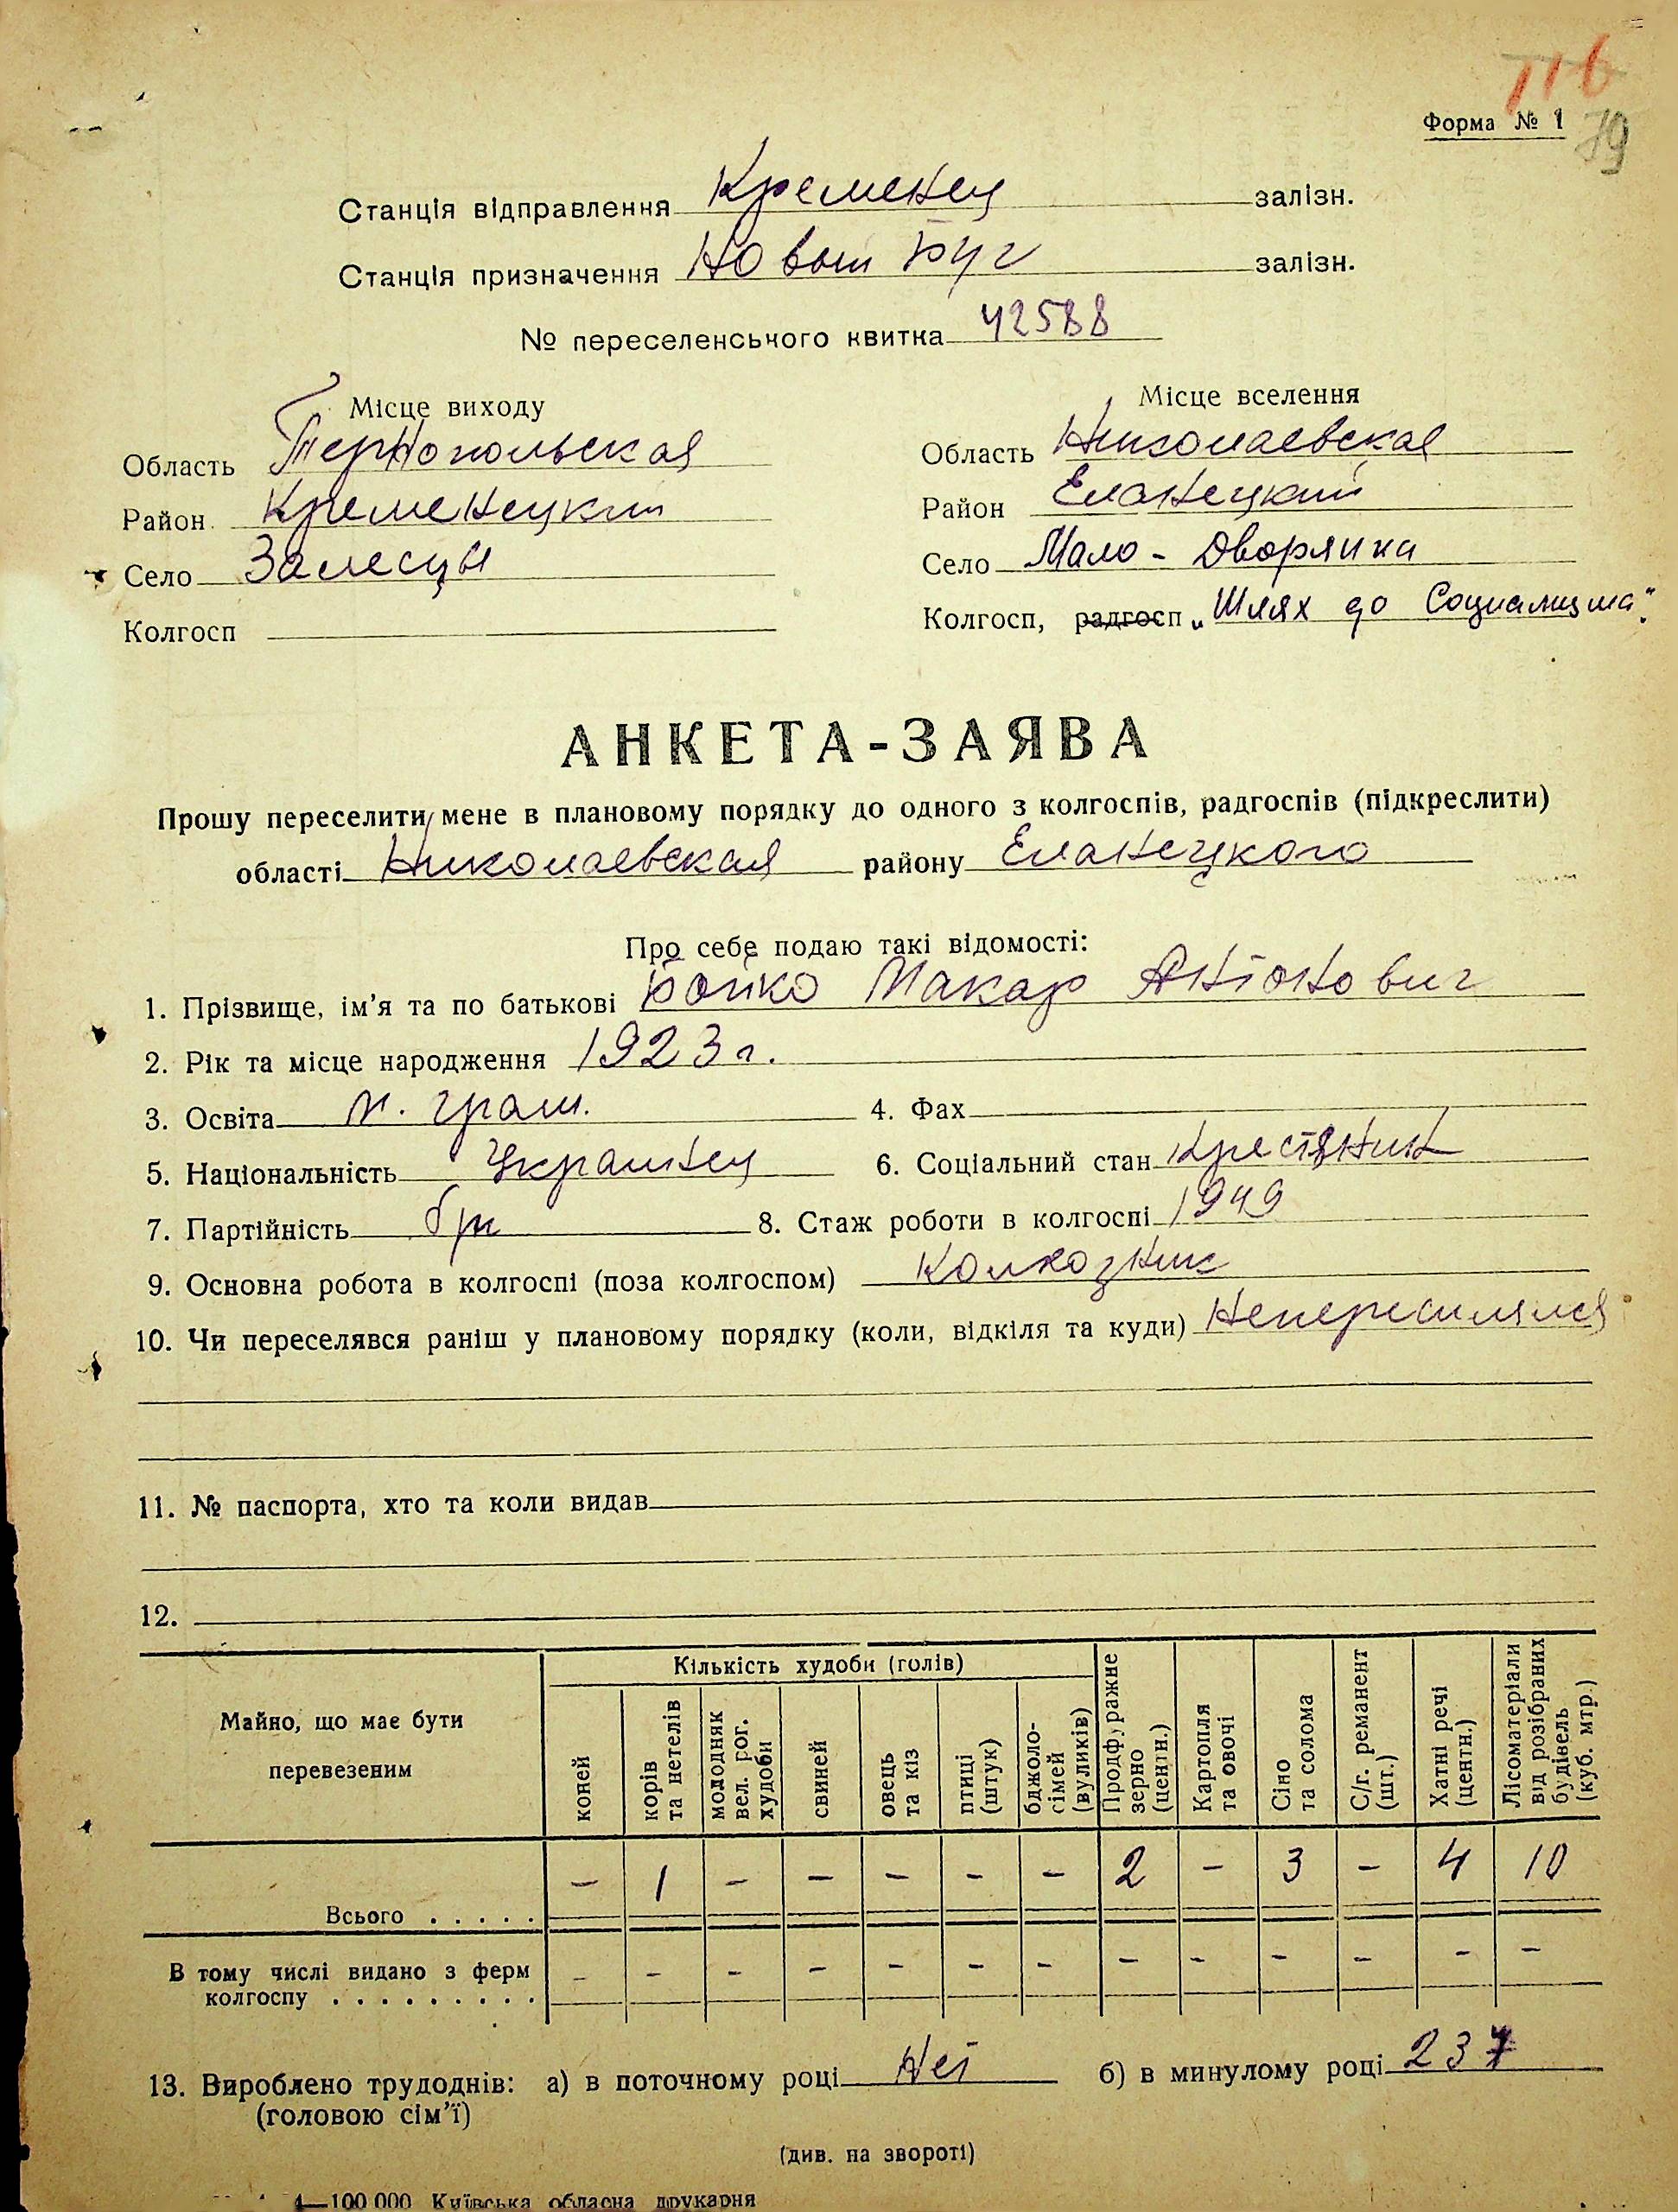 116
Форма № 1
79
Станція відправлення Кременец залізн.
Станція призначення Новый Буг залізн.
№ переселенського квитка 42588
Місце виходу
Область Тернопольская
Район Кременецкий
Село Залесцы
Колгосп
Місце вселення
Область Николаевская
Район Еланецкий
Село Мало-Дворянка
Колгосп, радгосп „Шлях до Социализма".
АНКЕТА-ЗАЯВА
Прошу переселити мене в плановому порядку до одного з колгоспів, радгоспів (підкреслити)
області Николаевская району Еланецкого
Про себе подаю такі відомості:
1. Прізвище, ім'я та по батькові Бойко Макар Антонович
2. Рік та місце народження 1923 г.
3. Освіта м. грам. 4. Фах
5. Національність Украинец 6. Соціальний стан Крестянин
7. Партійність бп 8. Стаж роботи в колгоспі 1949
9. Основна робота в колгоспі (поза колгоспом) Колхозник
10. Чи переселявся раніш у плановому порядку (коли, відкіля та куди) Непереселялся
11. № паспорта, хто та коли видав
12.
Майно, що має бути перевезеним
Кількість худоби (голів)
коней
корів та нетелів
молодняк вел. рог. худоби
свиней
овець та кіз
птиці (штук)
бджоло-сімей (вуликів)
Продфуражне зерно (центн.)
Картопля та овочі
Сіно та солома
С/г. реманент (шт.)
Хатні речі (центн.)
Лісоматеріали від розібраних будівель (куб. мтр.)
Всього . . . . . – 1 – – – – – 2 – 3 – 4 10
В тому числі видано з ферм
колгоспу . . . . . . . . . – – – – – – – – – – – – –
13. Вироблено трудоднів: а) в поточному році Нет б) в минулому році 237
(головою сім'ї)
(див. на звороті)
4—100 000 Київська обласна друкарня